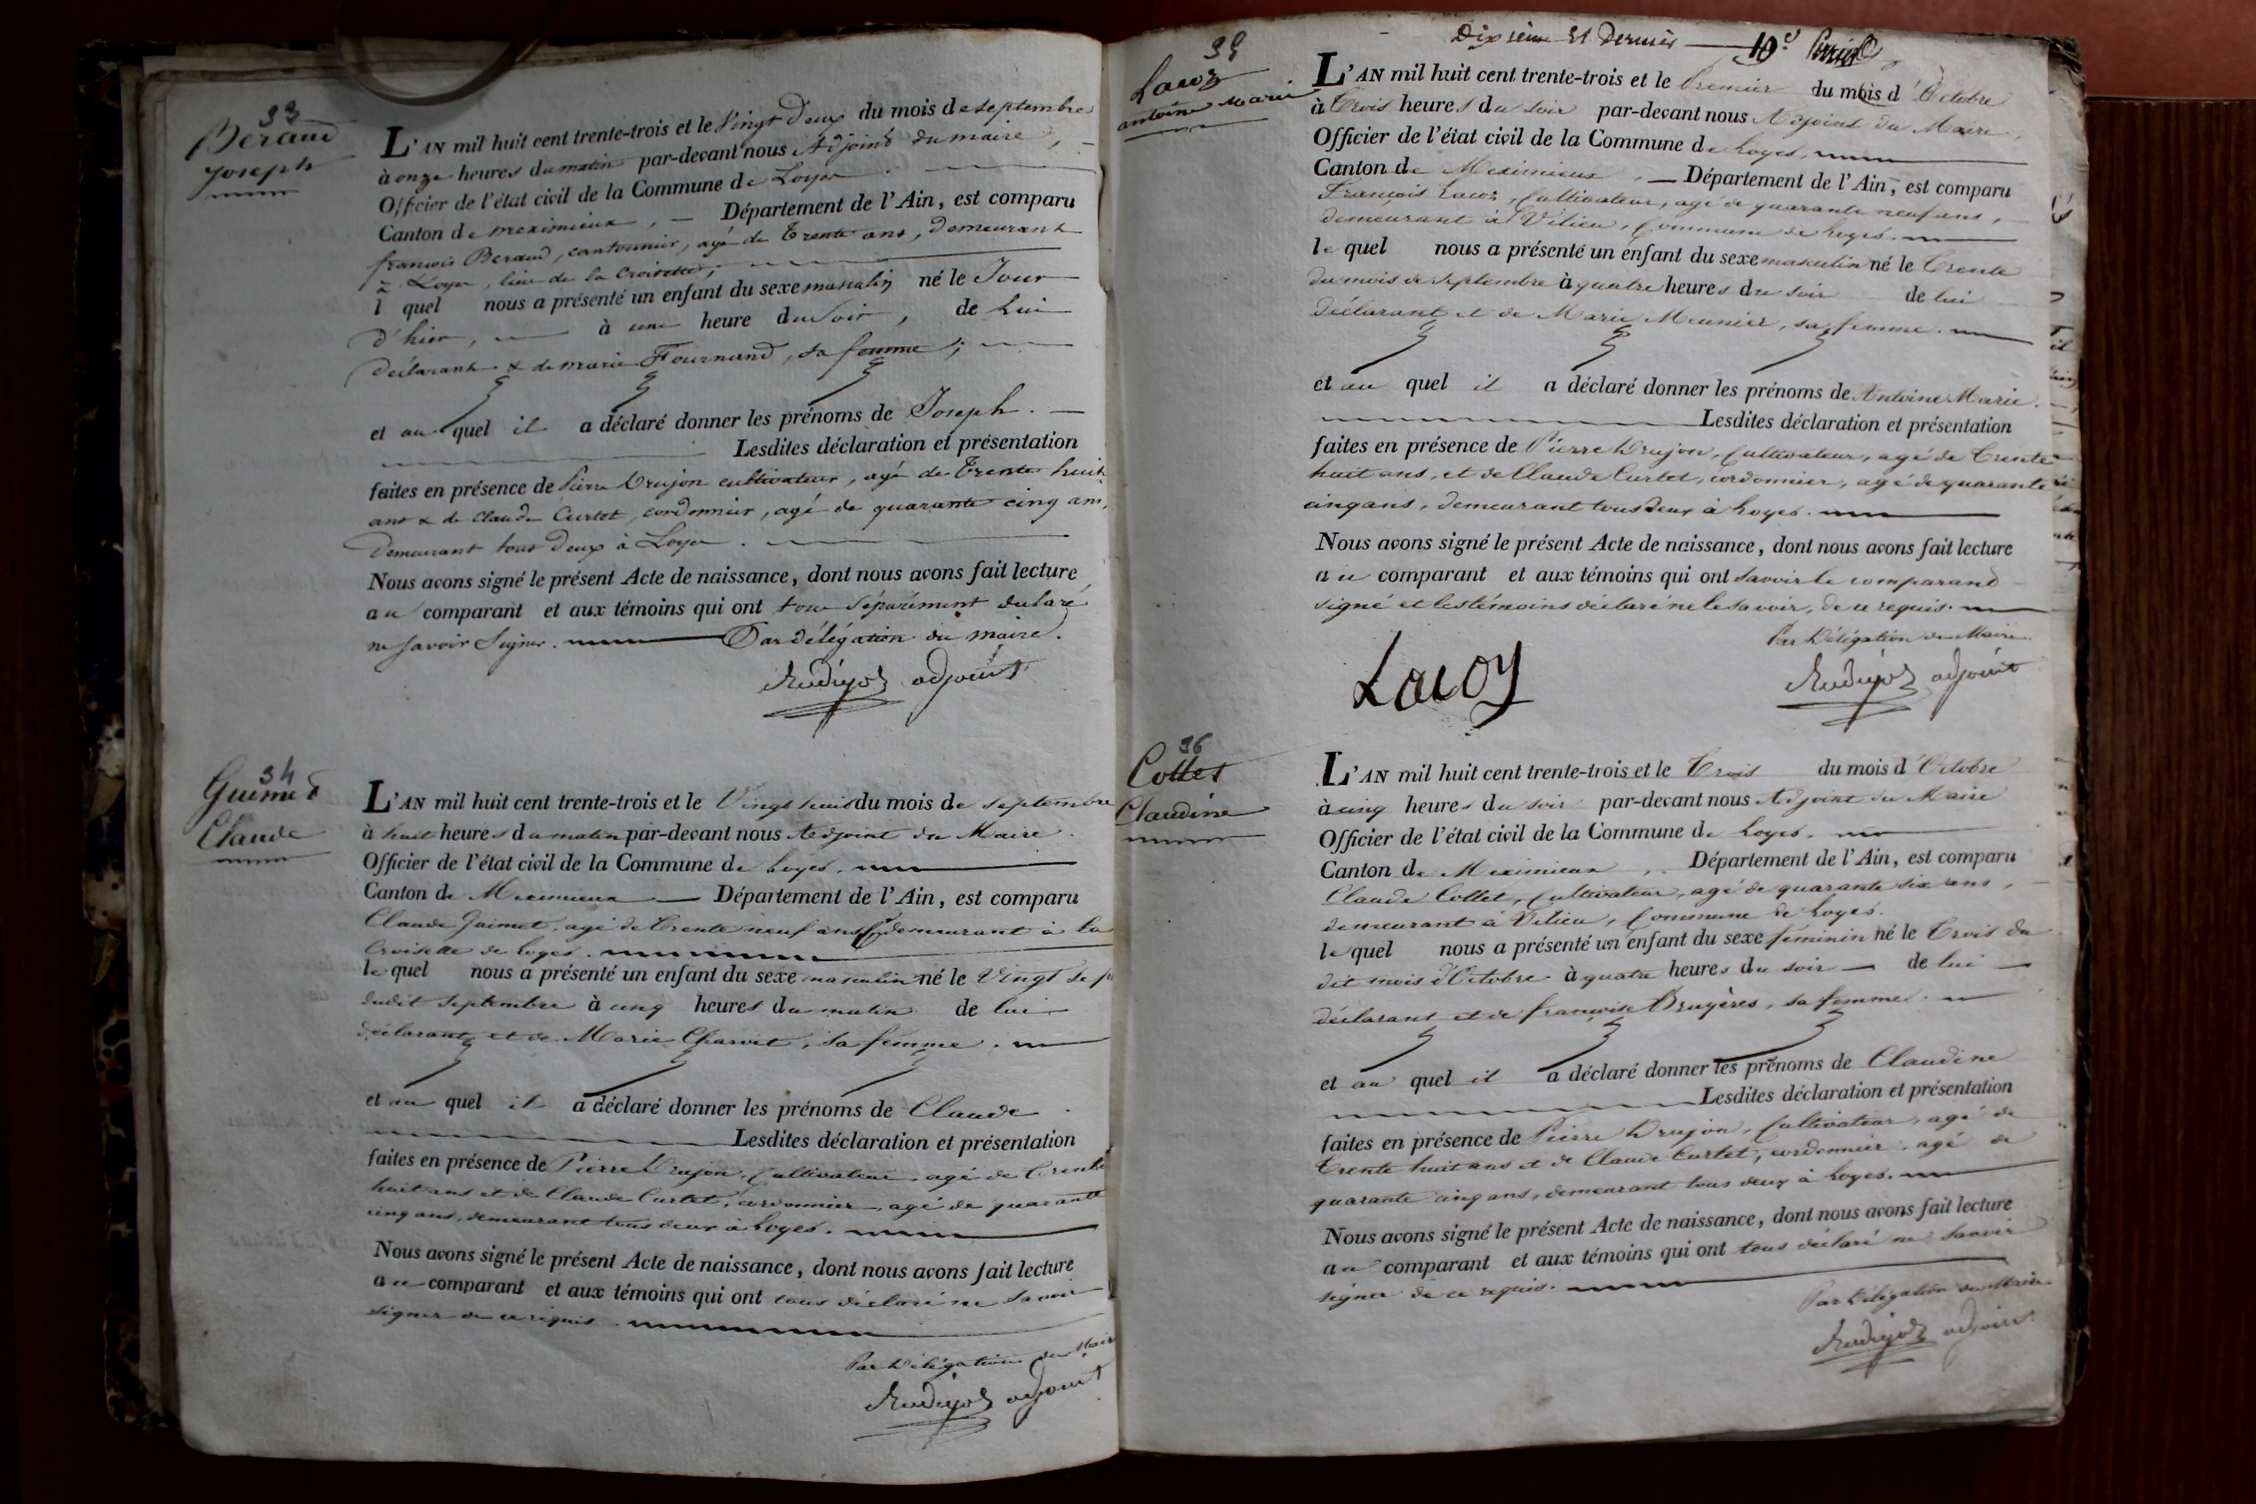 33
Beraud
Joseph
L'AN mil huit cent trente-trois et le Vingt Deux du mois de septembre
à onze heures du matin par-devant nous Adjoint du maire,
Officier de l'état civil de la Commune de Loyes
Canton de meximieux, Département de l'Ain, est comparu
françois Beraud, cantonnier, agé de Trente ans, Demeurant
à Loyes, lieu de la Croisette,
l quel nous a présenté un enfant du sexe masculin né le Jour
d'hier, à une heure du Soir, de Lui
déclarant & de marie Fournand, sa femme;
et au quel il a déclaré donner les prénoms de Joseph.
Lesdites déclaration et présentation
faites en présence de Pierre Drujon cultivateur, agé de Trente huit
ans & de Claude Curtet, cordonnier, agé de quarante cinq ans,
Demeurant tous Deux à Loyes.
Nous avons signé le présent Acte de naissance, dont nous avons fait lecture
au comparant et aux témoins qui ont tous séparément déclaré
ne savoir signer. Par délégation du maire.
adjoint
34
Guimet
Claude
L'AN mil huit cent trente-trois et le Vingt huit du mois de septembre
à huit heures du matin par-devant nous Adjoint du Maire.
Officier de l'état civil de la Commune de Loyes.
Canton de Meximieux Département de l'Ain, est comparu
Claude Guimet, agé de Trente neuf ans, demeurant à la
Croisette de Loyes.
le quel nous a présenté un enfant du sexe masculin né le Vingt sept
dudit septembre à cinq heures du matin de lui
déclarant et de Marie Charvet, sa femme.
et au quel il a déclaré donner les prénoms de Claude.
Lesdites déclaration et présentation
faites en présence de Pierre Drujon, Cultivateur, agé de Trente
huit ans et de Claude Curtet, cordonnier, agé de quarante
cinq ans, demeurant tous deux à Loyes.
Nous avons signé le présent Acte de naissance, dont nous avons fait lecture
au comparant et aux témoins qui ont tous déclaré ne savoir
signer de ce requis.
Par Délégation du Maire
adjoint
Dixième et Dernier 10e
35
Lacoz
antoine Marie
L'AN mil huit cent trente-trois et le Premier du mois d'Octobre
à Trois heures du soir par-devant nous Adjoint du Maire,
Officier de l'état civil de la Commune de Loyes,
Canton de Meximieux, Département de l'Ain, est comparu
François Lacoz, Cultivateur, agé de quarante neuf ans,
demeurant à Vilieu, Commune de Loyes.
le quel nous a présenté un enfant du sexe masculin né le Trente
du mois de septembre à quatre heures du soir de lui
déclarant et de Marie Meunier, sa femme.
et au quel il a déclaré donner les prénoms de Antoine Marie.
Lesdites déclaration et présentation
faites en présence de Pierre Drujon, Cultivateur, agé de Trente
huit ans, et de Claude Curtet, cordonnier, agé de quarante
cinq ans, demeurant tous deux à Loyes.
Nous avons signé le présent Acte de naissance, dont nous avons fait lecture
au comparant et aux témoins qui ont savoir le comparand
signé et les témoins déclaré ne le savoir, de ce requis.
Par Délégation du Maire
Lacoz
adjoint
36
Collet
Claudine
L'AN mil huit cent trente-trois et le Trois du mois d'Octobre
à cinq heures du soir par-devant nous Adjoint du Maire
Officier de l'état civil de la Commune de Loyes.
Canton de Meximieux, Département de l'Ain, est comparu
Claude Collet, Cultivateur, agé de quarante six ans,
demeurant à Vilieu, Commune de Loyes.
le quel nous a présenté un enfant du sexe féminin né le Trois du
dit mois d'Octobre à quatre heures du soir de lui
déclarant et de françoise Bruyères, sa femme.
et au quel il a déclaré donner les prénoms de Claudine
Lesdites déclaration et présentation
faites en présence de Pierre Drujon, Cultivateur, agé de
Trente huit ans et de Claude Curtet, cordonnier, agé de
quarante cinq ans, demeurant tous deux à Loyes.
Nous avons signé le présent Acte de naissance, dont nous avons fait lecture
au comparant et aux témoins qui ont tous déclaré ne savoir
signer de ce requis.
Par Délégation du Maire
adjoint